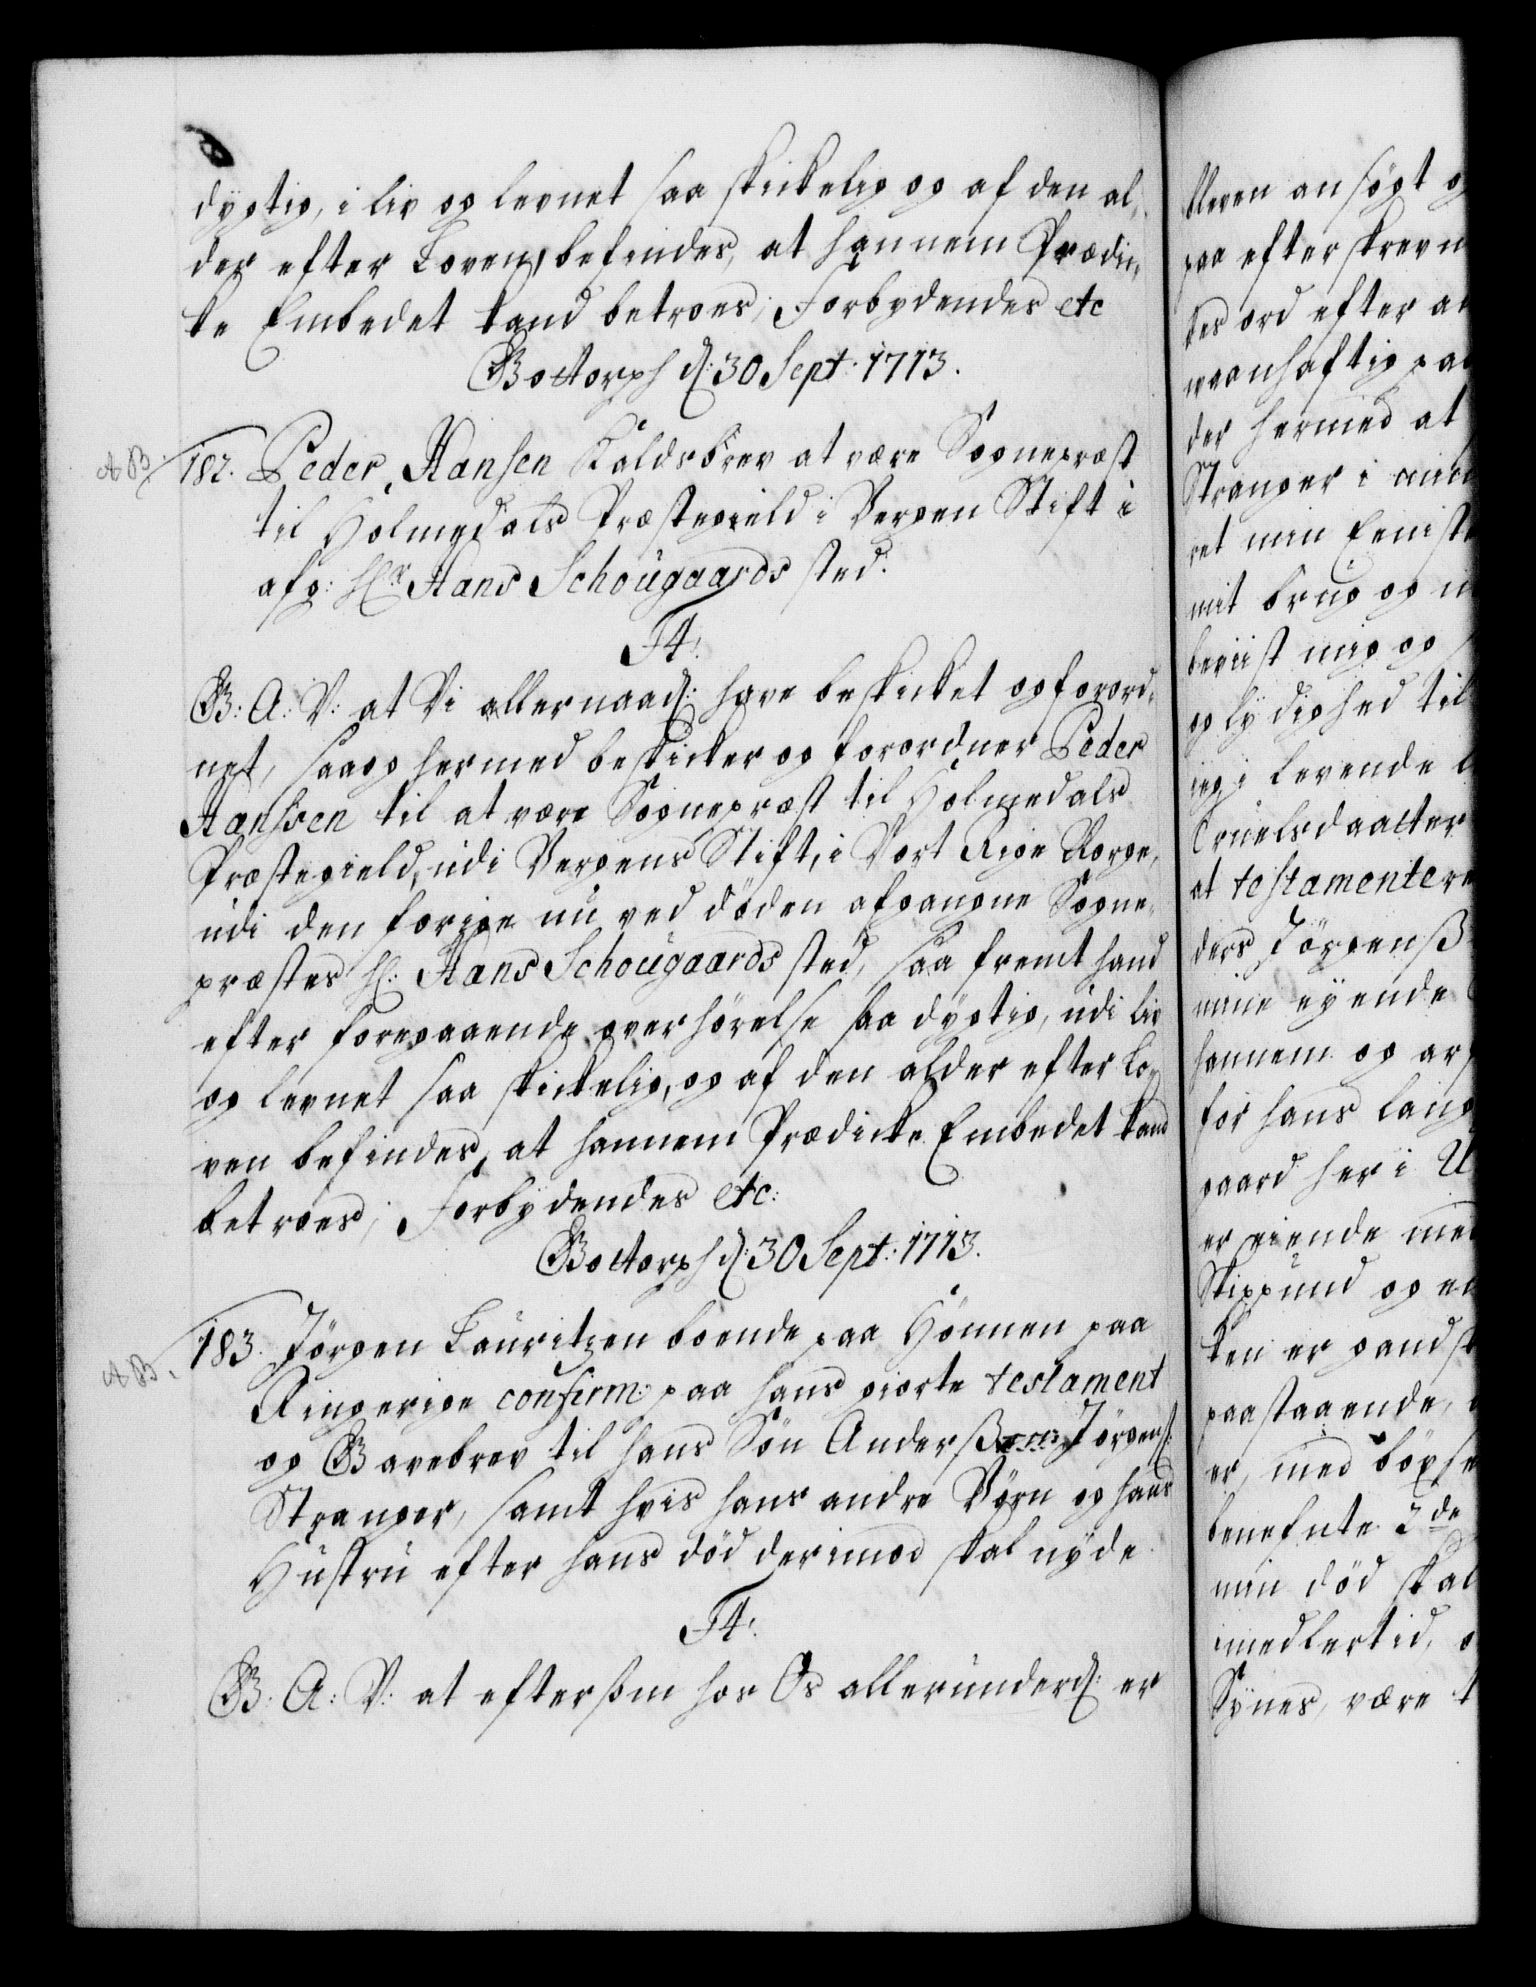 dygtig, i liv og levnet saa skickelig og af den al„
der efter Loven, befindes, at hannem Prædi„
ke Embedet kand betroes, Forbydendes etc
Gottorph d: 30 Sept: 1713.
AB.
182. Peder Hansen Kaldsbrev at være Sognepræst
til Holmedals Præstegield i Bergen Stift i
afg: Hr Hans Schougaards sted.
F4.
G: A: V: at Vi allernaad: have beskicket og forord„
net, saa og hermed beskicker og forordner Peder
Hanssen til at være Sognepræst til Holmedals
Præstegield, udi Bergens Stift, i Vort Rige Norge,
udi den forige nu ved döden afgangne Sogne„
præstes H: Hans Schougaards sted, saa fremt hand
efter foregaaende overhörelse saa dygtig, udi liv
og levnet saa skickelig, og af den alder efter Lo„
ven befindes, at hannem Prædicke Embedet kand
betroes, Forbydendes etc:
Gottorph d: 30 Sept: 1713.
AB.
183. Jörgen Lauritzen boende paa Hönnen paa
Ringerige confirm: paa hans giorte testament
og Gavebrev til hans Sön Anders Jörgens:
Stranger, samt hvis hans andre Börn og hans
Hustru efter hans död derimod skal nyde
F4.
G: A: V: at eftersom hos Os allerunderd: er
tleven ansögt og
paa efterskrevn
tes ord efter an
waanhaftig paa
der hermed at
Stranger i
ret min Eeniste
mit brug og
beviist mig og
og lydighed til
jeg i levende
Truelsdaatter
at testamentere
ders Jörgenß
mine eyende
hannem og arf
for hans lang
gaard her i
er eiende med
Skippund og en
ken er pandst
paastaaende,
er, med böxse
benefnte 2de
min död skal
imedlertid, o
Synes, være t